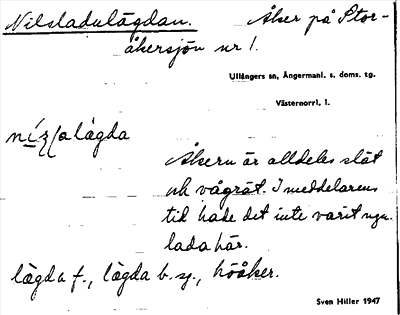 Nilsladulägdan. Åker på Stor-
åkersjön nr 1.
Ullångers sn, Ångermanl. s. doms. tg.
Västernorrl. l.
Åkern är alldeles slät
och vågrät. I meddelarens
tid hade det inte varit ngn
lada här.
lägda f., lägda b. sg., höåker.
Sven Hiller 1947